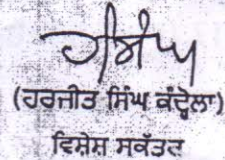 (ਹਰਜੀਤ ਸਿੰਘ ਕੰਦ੍ਹੋਲਾ)
ਵਿਸ਼ੇਸ਼ ਸਕੱਤਰ